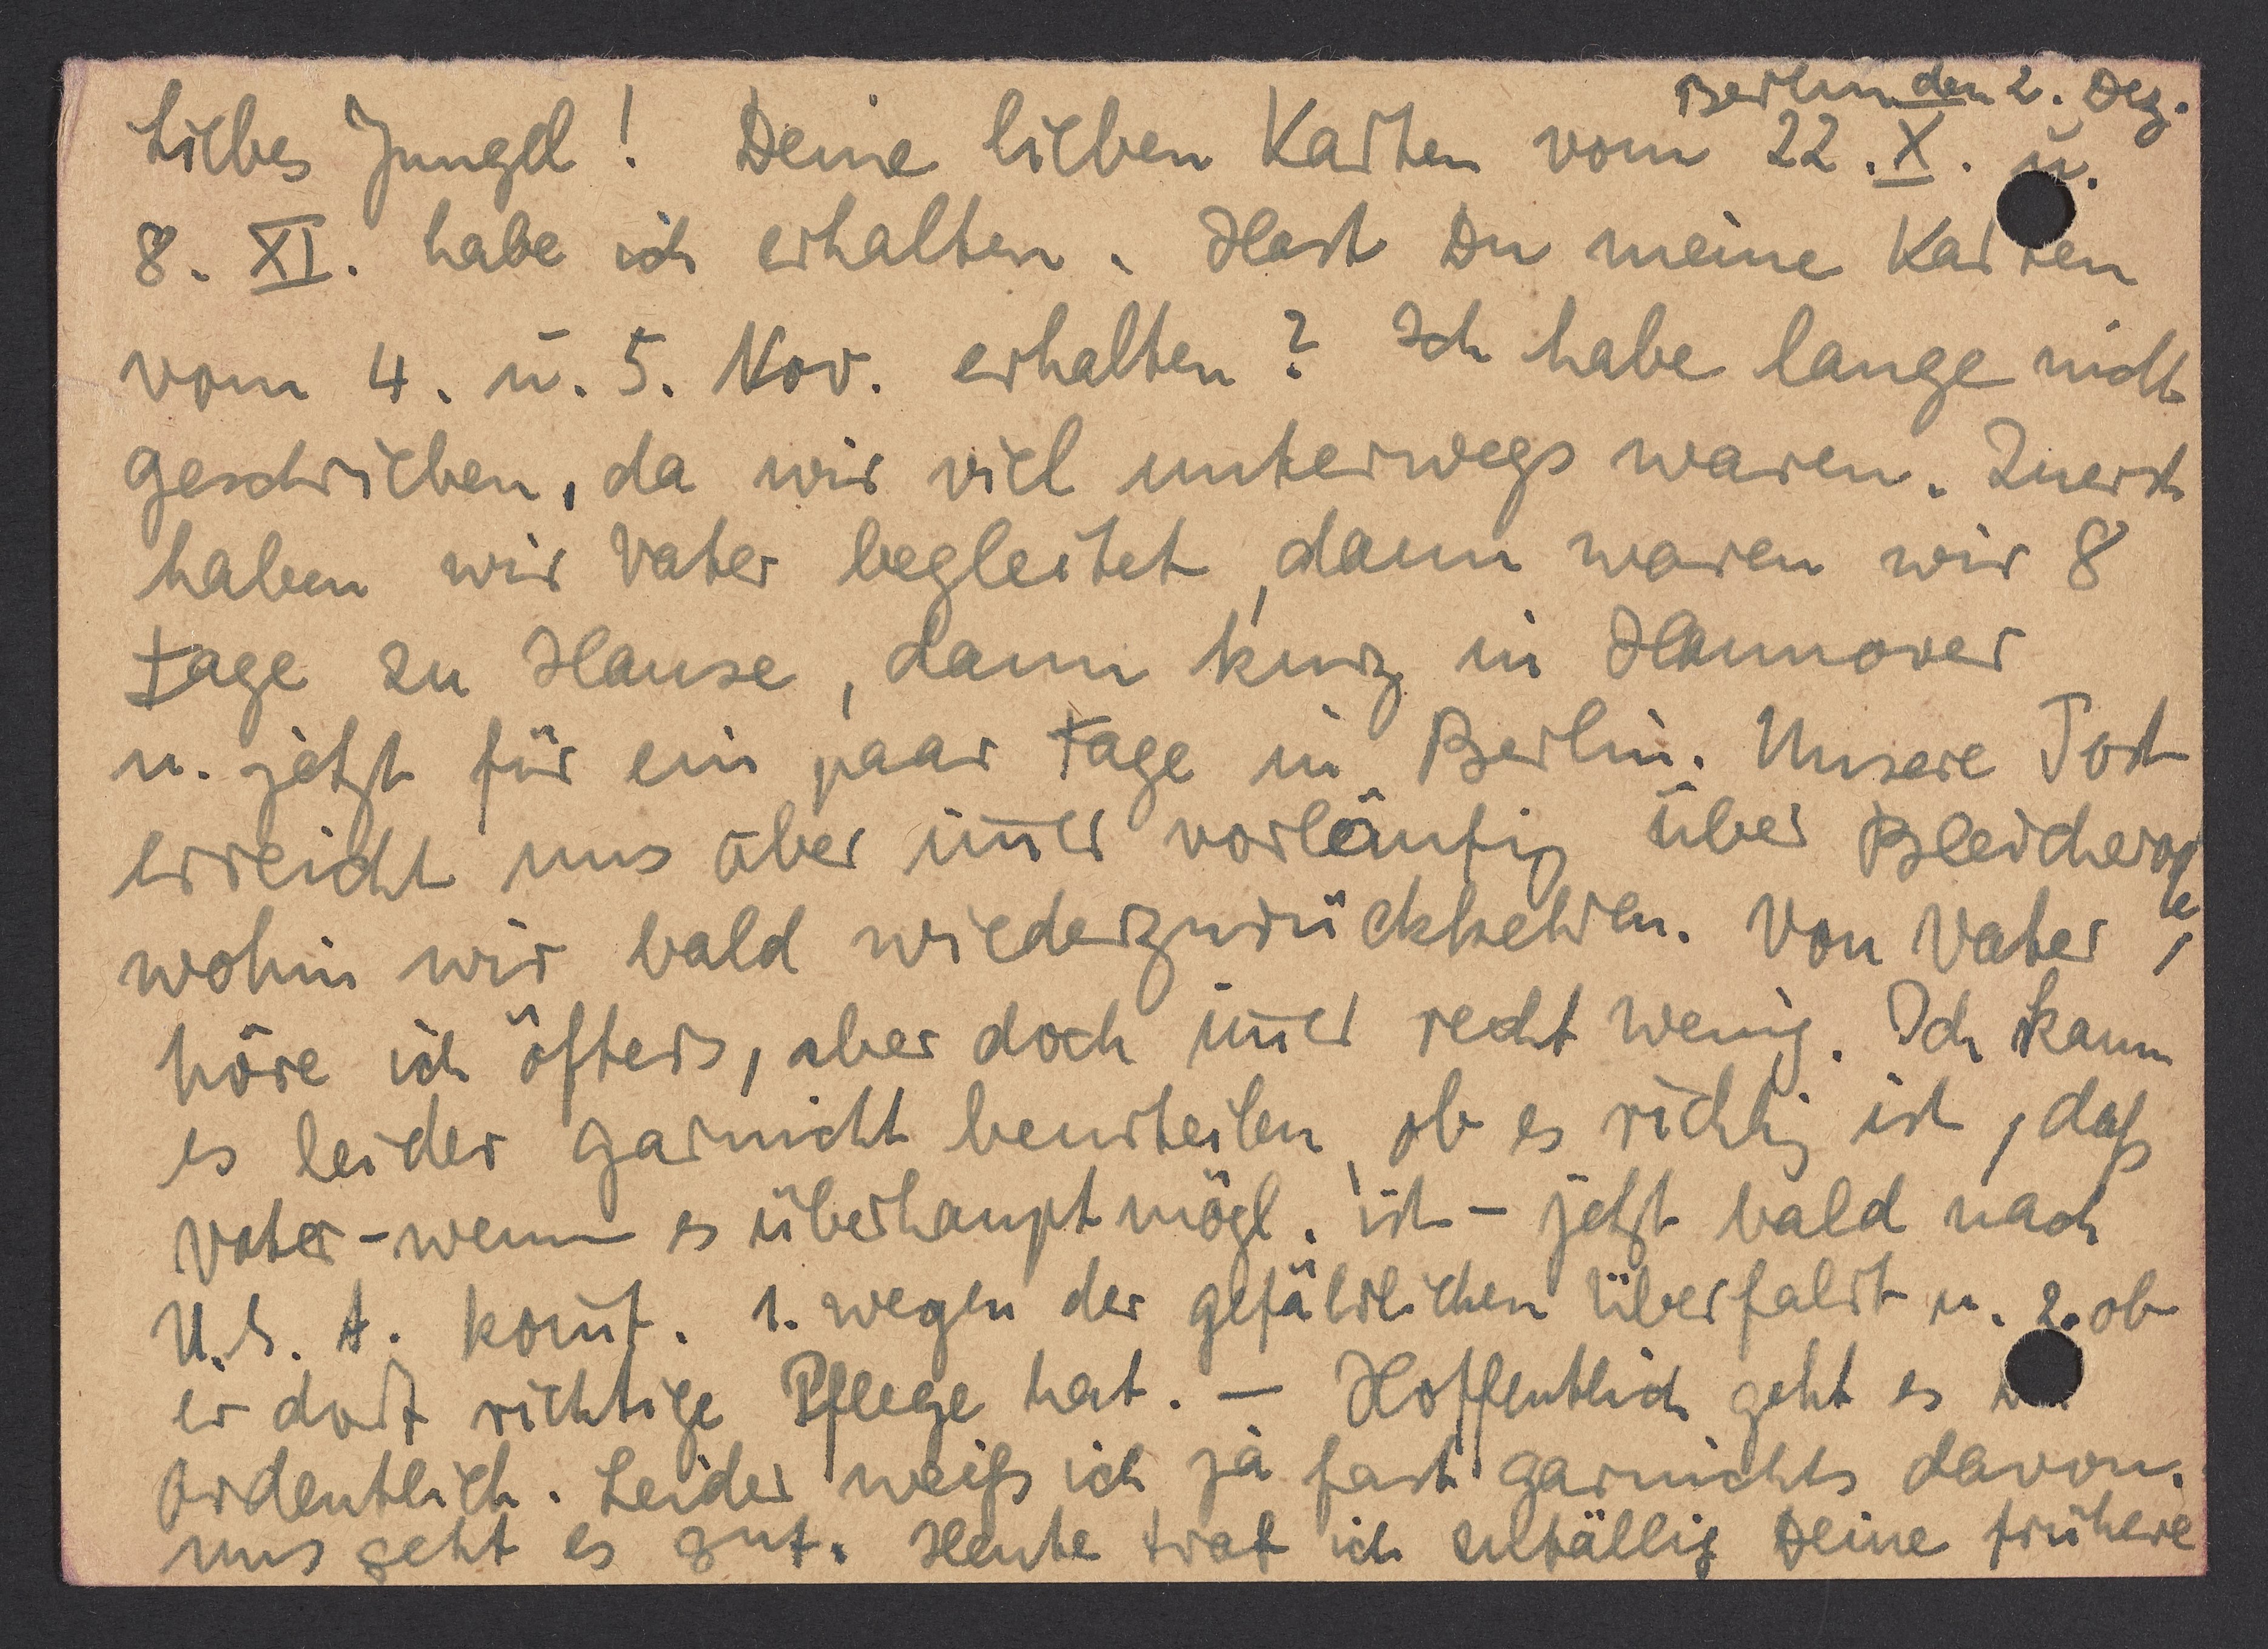 Berlin den 2. Dez.
Liebes Jungel! Deine lieben Karten vom 22. X. u.
8. XI. habe ich erhalten. Hast Du meine Karten
vom 4. u. 5. Nov. erhalten? Ich habe lange nicht
geschrieben, da wir viel unterwegs waren. Zuerst
haben wir Vater begleitet, dann waren wir 8
Tage zu Hause, dann kurz in Hannover
u. jetzt für ein paar Tage in Berlin. Unsere Post
erreicht uns aber im̅er vorläufig über Bleicherode,
wohin wir bald wiederzurückkehren. Von Vater
höre ich öfters, aber doch im̅er recht wenig. Ich kann
es leider garnicht beurteilen, ob es richtig ist, daß
Vater - wenn es überhaupt mögl. ist - jetzt bald nach
U.S.A. kom̅t. 1. wegen der gefährlichen Überfahrt u. 2. ob
er dort richtige Pflege hat. — Hoffentlich geht es
ordentlich. Leider weiß ich ja fast garnichts davon.
uns geht es gut. Heute traf ich zufällig Deine frühere